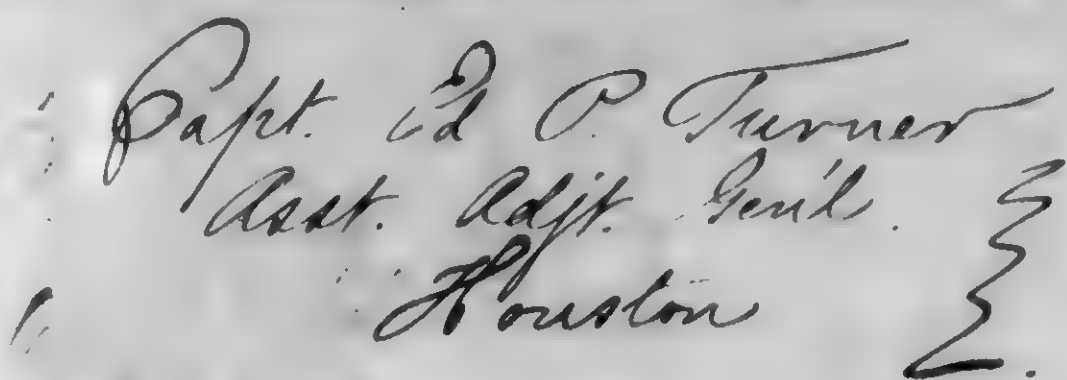 Capt. Ed P. Turner
Asst. Adjt. Gen'l.
Houston